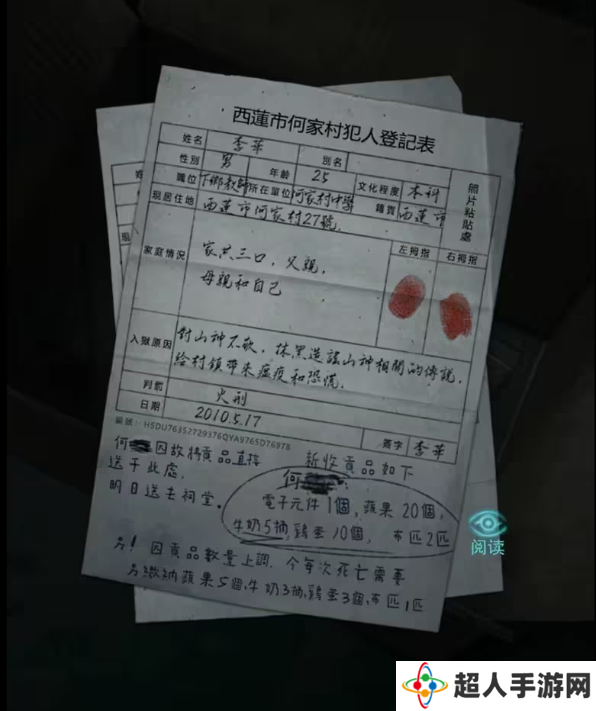 西蓮市何家村犯人登記表
姓名 李華 別名
性別 男 年齡 25 文化程度 本科
職位 下鄉教師 所在單位 何家村中學 籍貫 西蓮市
現居住地 西蓮市何家村27號
照片粘貼處
家庭情況 家共三口，父親，
母親和自己
左拇指 右拇指
入獄原因 對山神不敬，抹黑造謠山神相關的傳說，
給村鎮帶來瘟疫和恐慌。
判前 火刑
日期 2010.5.17 簽字 李華
編號：HSDU76352729376QYA9765D76978
何 因故將貢品直接
送于此處，
明日送去祠堂。
新收貢品如下
何
電子元件1個，蘋果20個，
牛奶5抽，雞蛋10個，布匹2匹
另！因貢品數量上調，今每次死亡需要
另繳納蘋果5個，牛奶3抽，雞蛋3個，布匹1匹
阅读
超人手游网